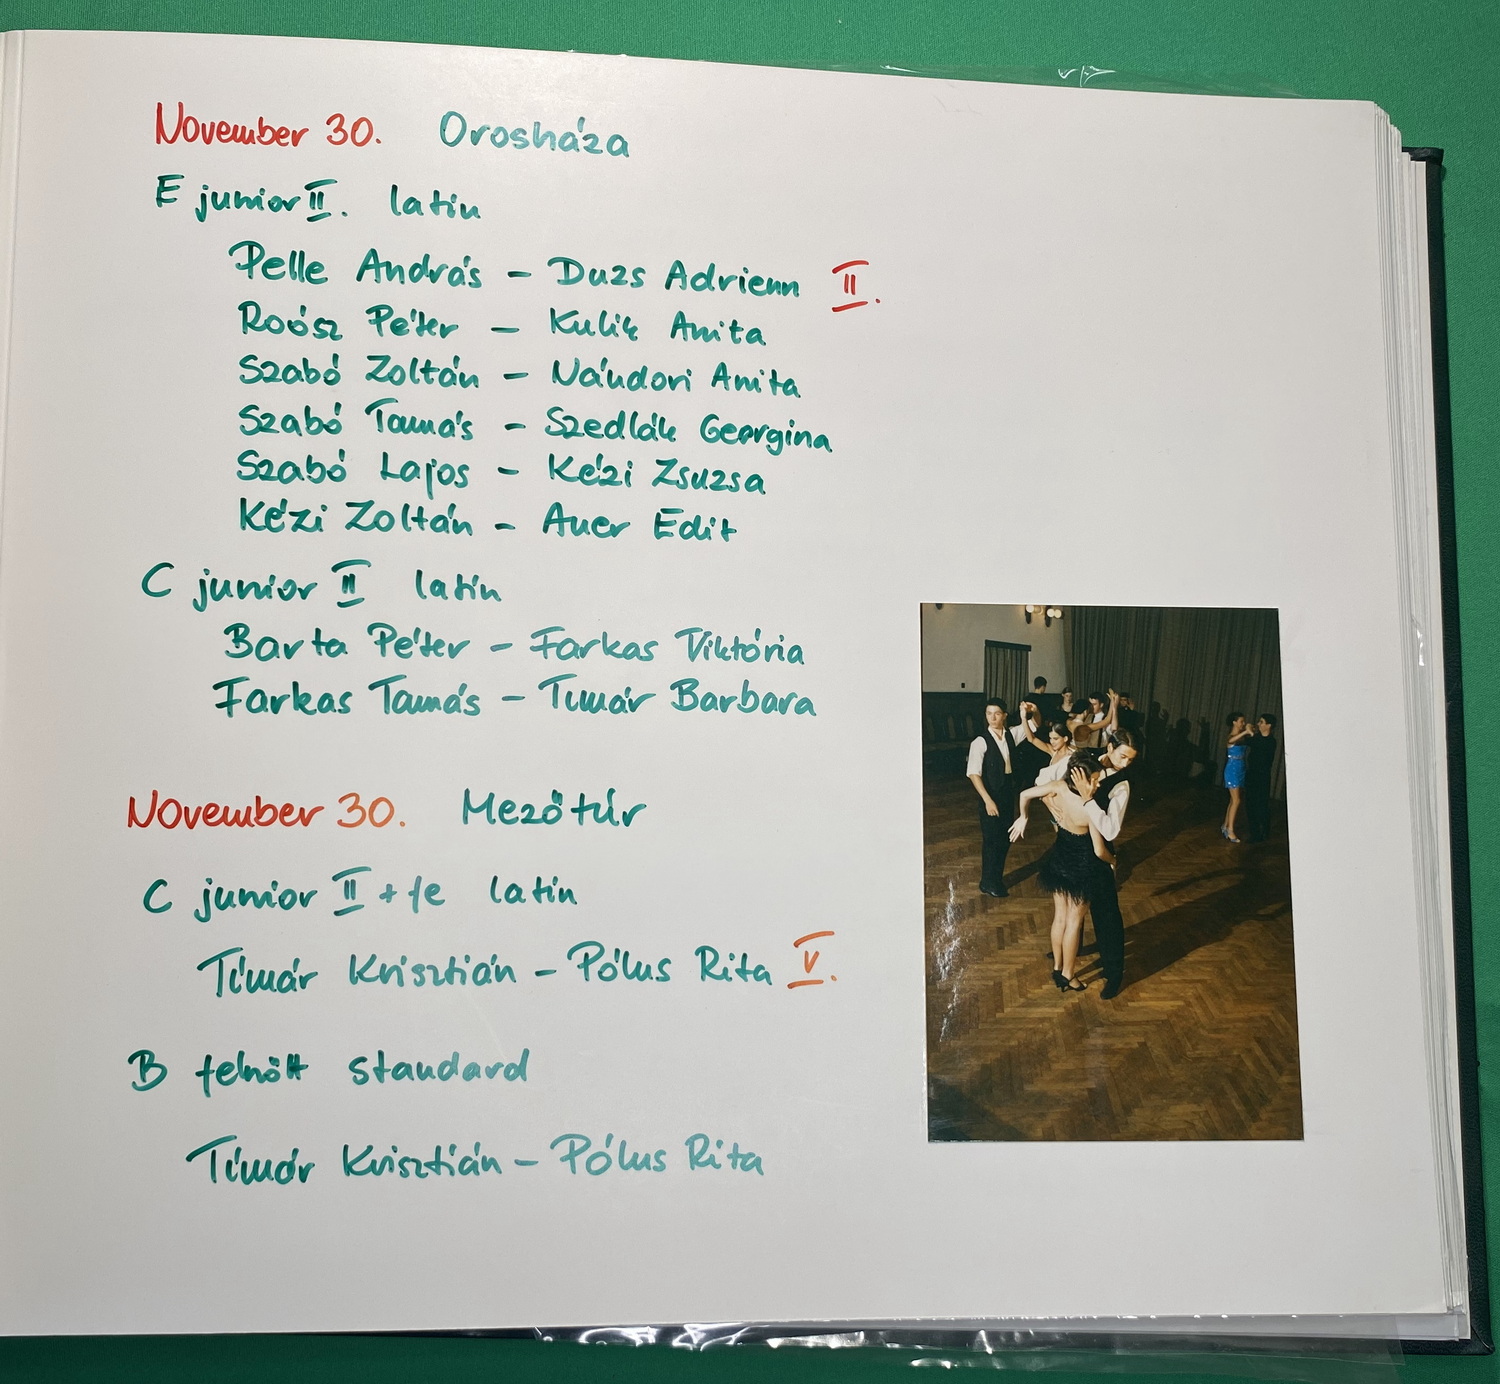 November 30. Orosháza
E junior II. latin
Pelle András - Duzs Adrienn II.
Roósz Péter - Kulik Anita
Szabó Zoltán - Nándori Anita
Szabó Tamás - Szedlák Georgina
Szabó Lajos - Kézi Zsuzsa
Kézi Zoltán - Auer Edit
C junior II latin
Barta Péter - Farkas Viktória
Farkas Tamás - Tímár Barbara
November 30. Mezőtúr
C junior II + fe latin
Tímár Krisztián - Pólus Rita V.
B felnőtt standard
Tímár Krisztián - Pólus Rita